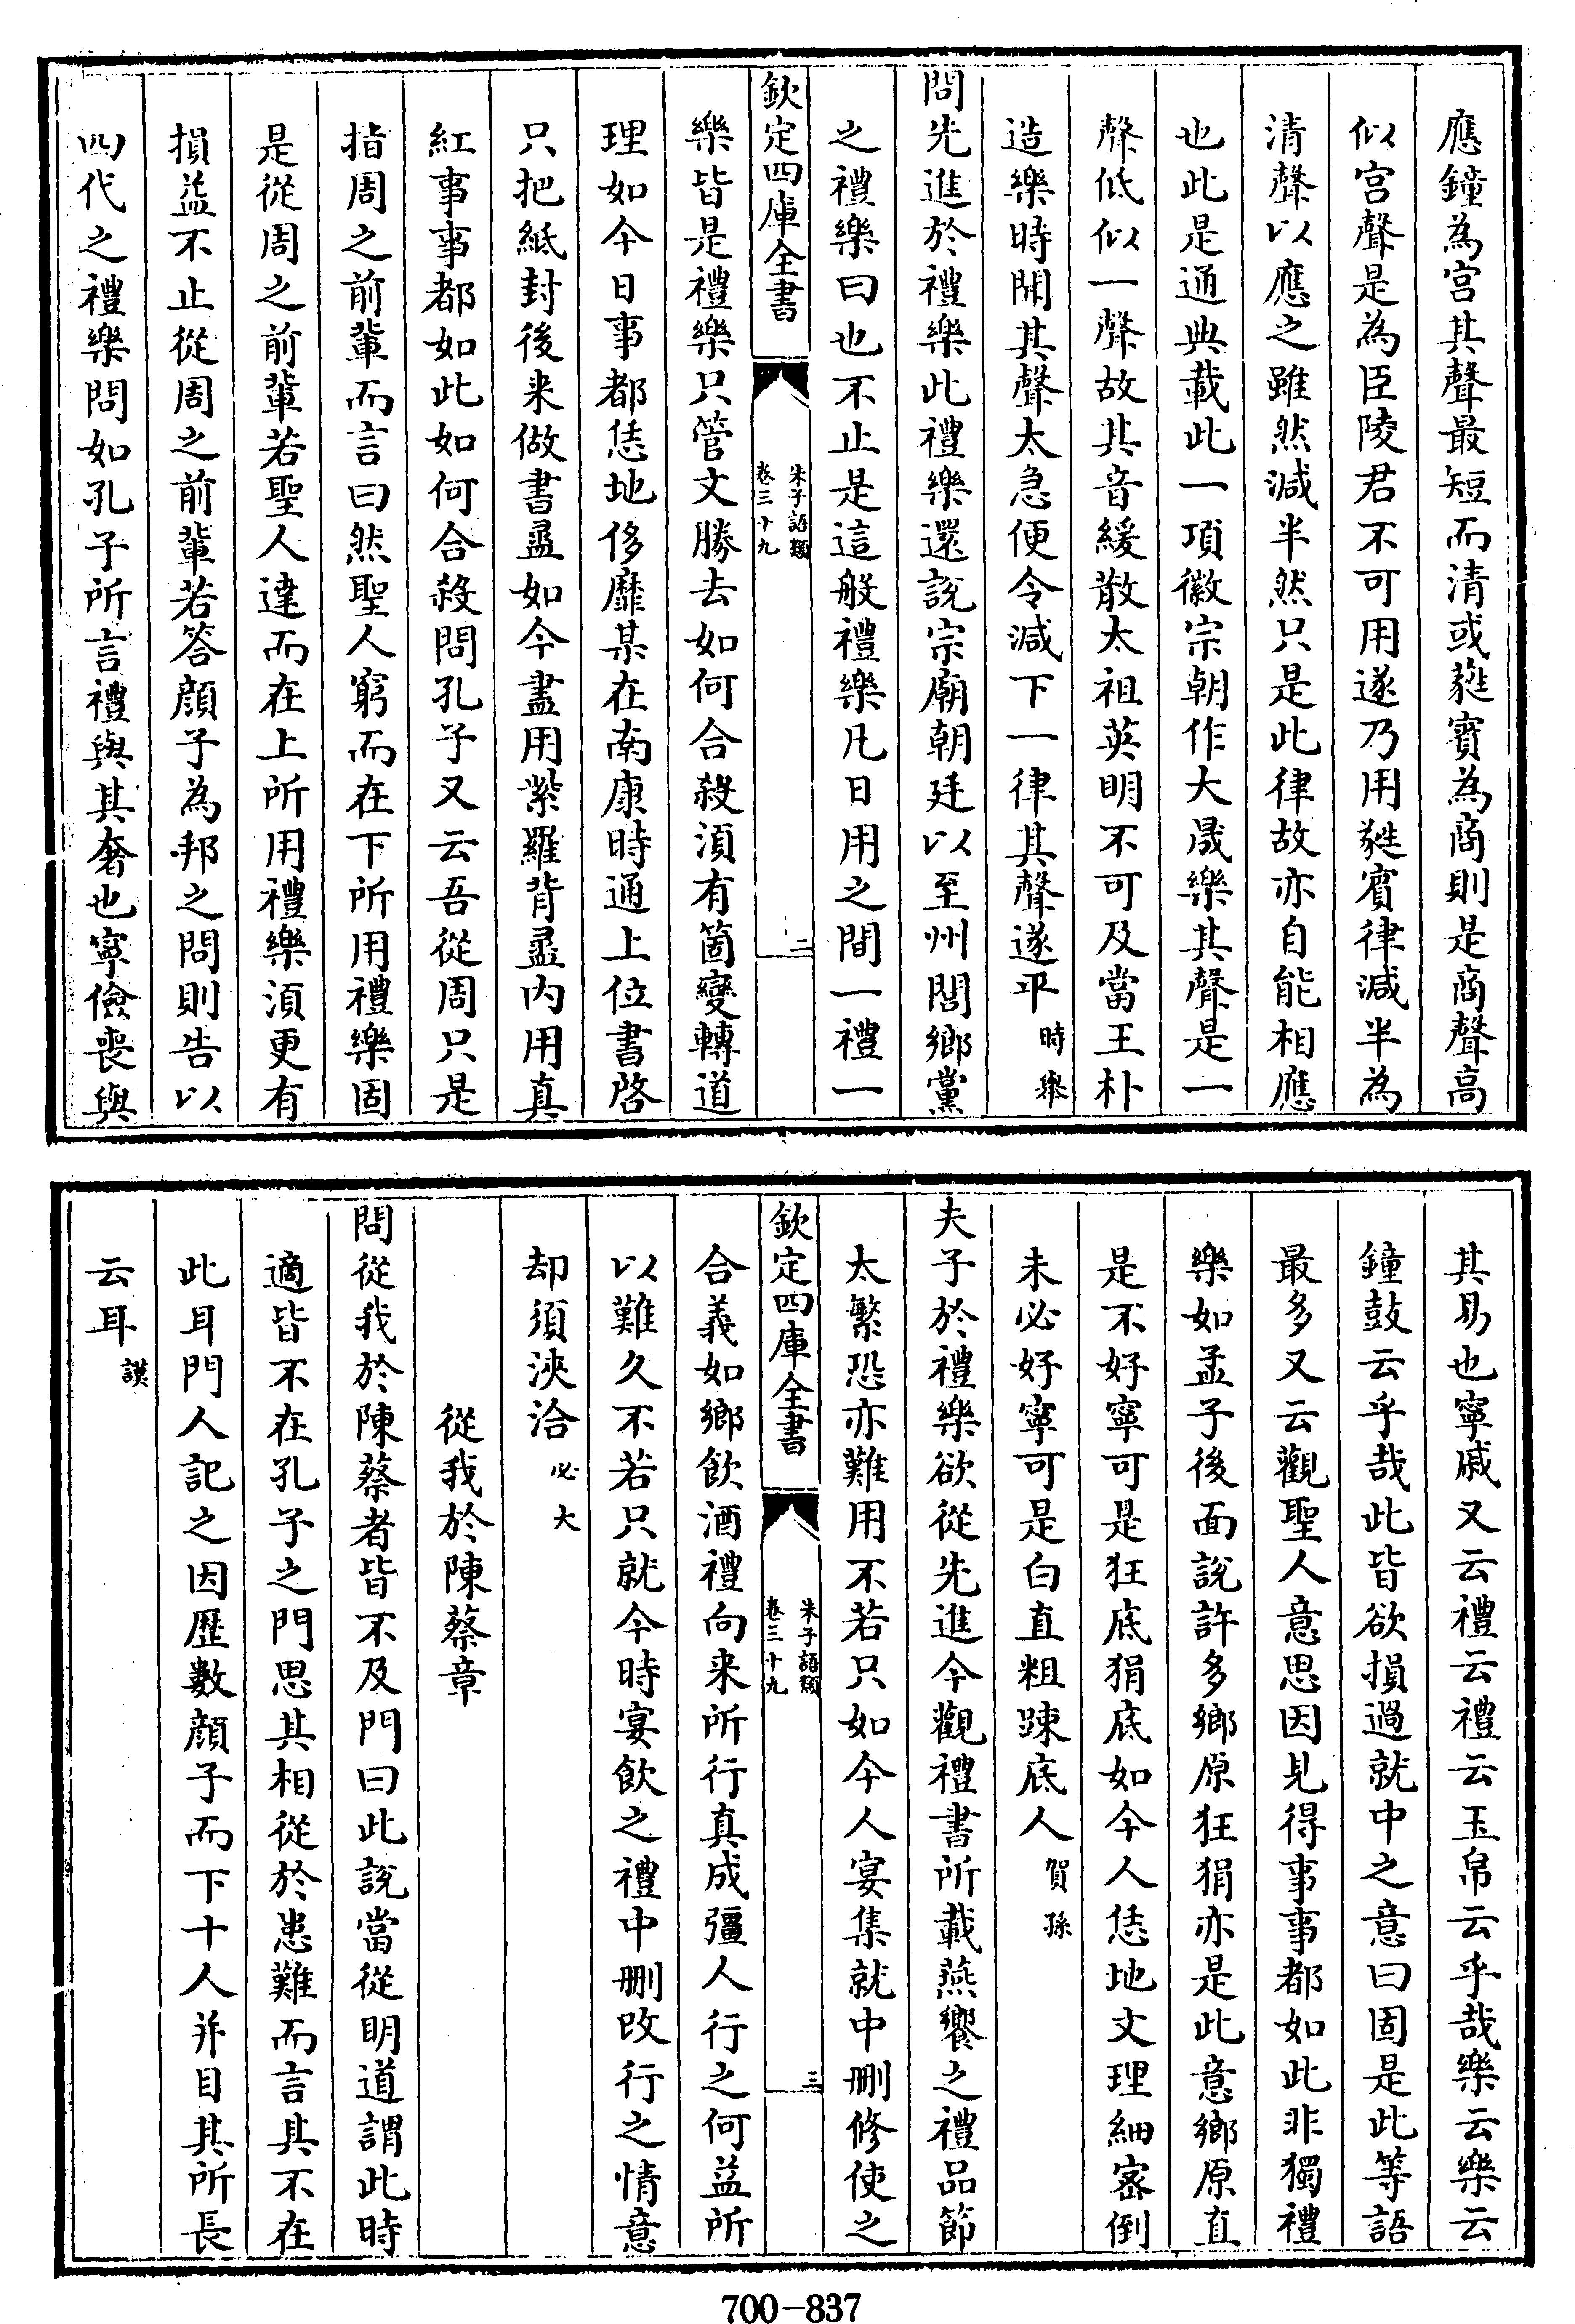 應鐘為宫其聲最短而清或蕤賓為商則是商聲高
似宫聲是為臣陵君不可用遂乃用蕤賓律減半為
清聲以應之雖然減半然只是此律故亦自能相應
也此是通典載此一項徽宗朝作大晟樂其聲是一
聲低似一聲故其音緩散太祖英明不可及當王朴
造樂時聞其聲太急便令減下一律其聲遂平時舉
問先進於禮樂此禮樂還説宗廟朝廷以至州閭鄉黨
之禮樂曰也不止是這般禮樂凡日用之間一禮一
欽定四庫全書 朱子語類 卷三十九 二
樂皆是禮樂只管文勝去如何合殺須有箇變轉道
理如今日事都恁地侈靡某在南康時通上位書啓
只把紙封後来做書盝如今盡用紫羅背盝内用真
紅事事都如此如何合殺問孔子又云吾從周只是
指周之前輩而言曰然聖人窮而在下所用禮樂固
是從周之前輩若聖人達而在上所用禮樂須更有
損益不止從周之前輩若答顔子為邦之問則告以
四代之禮樂問如孔子所言禮與其奢也寧儉喪與
其易也寧戚又云禮云禮云玉帛云乎哉樂云樂云
鐘鼓云乎哉此皆欲損過就中之意曰固是此等語
最多又云觀聖人意思因見得事事都如此非獨禮
樂如孟子後面説許多鄉原狂狷亦是此意鄉原直
是不好寧可是狂底狷底如今人恁地文理細密倒
未必好寧可是白直粗疎底人賀孫
夫子於禮樂欲從先進今觀禮書所載燕饗之禮品節
太繁恐亦難用不若只如今人宴集就中刪修使之
欽定四庫全書 朱子語類 卷三十九 三
合義如鄉飲酒禮向来所行真成彊人行之何益所
以難久不若只就今時宴飲之禮中刪改行之情意
却須浹洽必大
從我於陳蔡章
問從我於陳蔡者皆不及門曰此説當從明道謂此時
適皆不在孔子之門思其相從於患難而言其不在
此耳門人記之因歴數顔子而下十人并目其所長
云耳謨
700-837